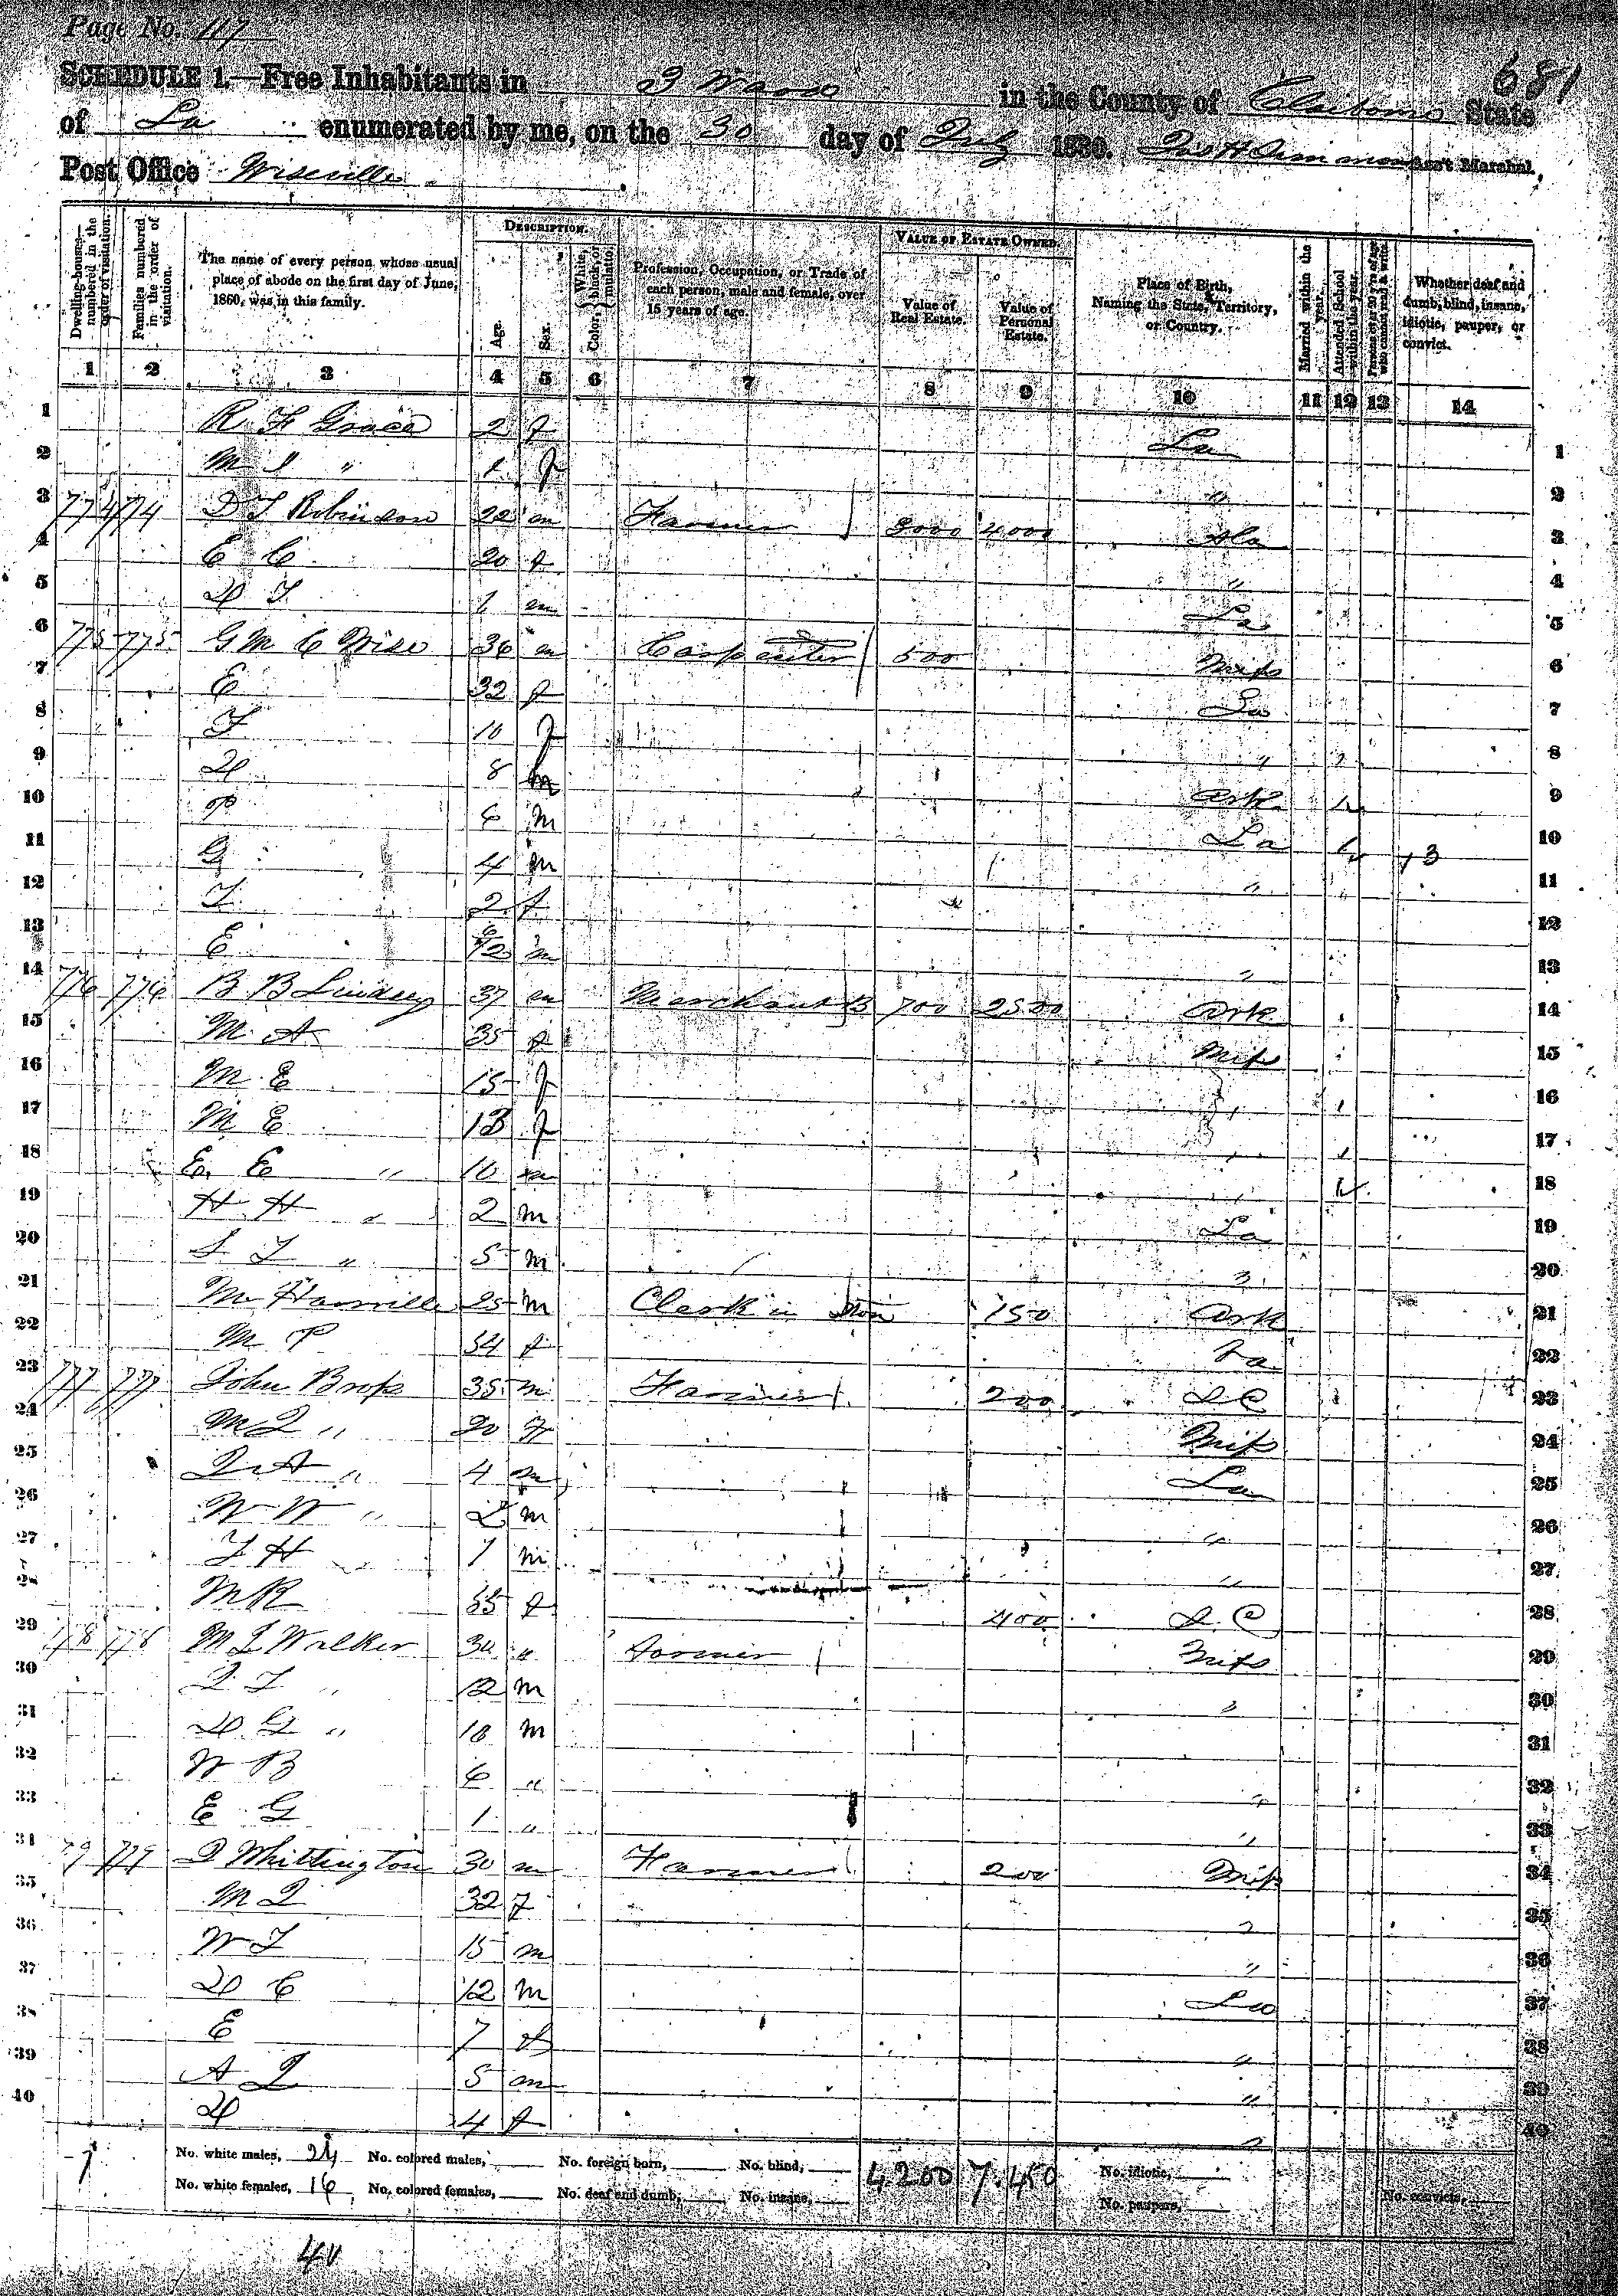 Page No. 117
681
SCHEDULE 1.—Free Inhabitants in 3 Ward in the County of Claiborne State
of La enumerated by me, on the 30 day of July 1860. Ass't Marshal.
Post Office Wiseville
Dwelling-houses—numbered in the order of visitation.
Families numbered in the order of visitation.
The name of every person whose usual place of abode on the first day of June, 1860, was in this family.
DESCRIPTION.
Age.
Sex.
Color, White, black, or mulatto.
Profession, Occupation, or Trade of each person, male and female, over 15 years of age.
VALUE OF ESTATE OWNED.
Value of Real Estate.
Value of Personal Estate.
Place of Birth, Naming the State, Territory, or Country.
Married within the year.
Attended School within the year.
Persons over 20 y'rs of age who cannot read & write.
Whether deaf and dumb, blind, insane, idiotic, pauper, or convict.
1 2 3 4 5 6 7 8 9 10 11 12 13 14
1 R F Grace 2 f La 1
2 M J " 1 f " 2
3 774 774 D T Robinson 22 m Farmer 3000 4000 Ala 3
4 E C 20 f " 4
5 D T 1 m La 5
6 775 775 G M C Wise 36 m Carpenter 500 Miss 6
7 E 32 f La 7
8 F 10 f " 8
9 D 8 m Ark 9
10 P 6 m La 10
11 G 4 m " 11
12 T 2 f 12
13 E 6/12 m " 13
14 776 776 B B Lindsey 37 m Merchant 700 2500 Ark 14
15 M A 35 f Miss 15
16 M E 15 f " 16
17 M E 13 f " 17
18 E. E " 10 m " 18
19 H H " 2 m La 19
20 S T " 5 m " 20
21 M Hanville 25 m Clerk in Store 150 Ark 21
22 M P 54 f Va 22
23 777 777 John Bross 35 m Farmer 200 S C 23
24 M J " 20 f Miss 24
25 J A " 4 m La 25
26 W W " 2 m " 26
27 J H 1 m " 27
28 M R 55 f 400 S. C 28
29 778 778 M J Walker 30 " Farmer Miss 29
30 J T " 12 m " 30
31 D G " 10 m 31
32 W B 6 " " 32
33 E G 1 " " 33
34 779 779 J Whittington 30 m Farmer 200 Miss 34
35 M J 32 f " 35
36 W T 15 m " 36
37 D C 12 m La 37
38 E 7 f " 38
39 A J 5 m " 39
40 D 4 f " 40
No. white males, 24 No. colored males, No. foreign born, No. blind, 4200 7.450 No. idiotic,
No. white females, 16 No. colored females, No. deaf and dumb, No. insane, No. paupers, No. convicts,
40